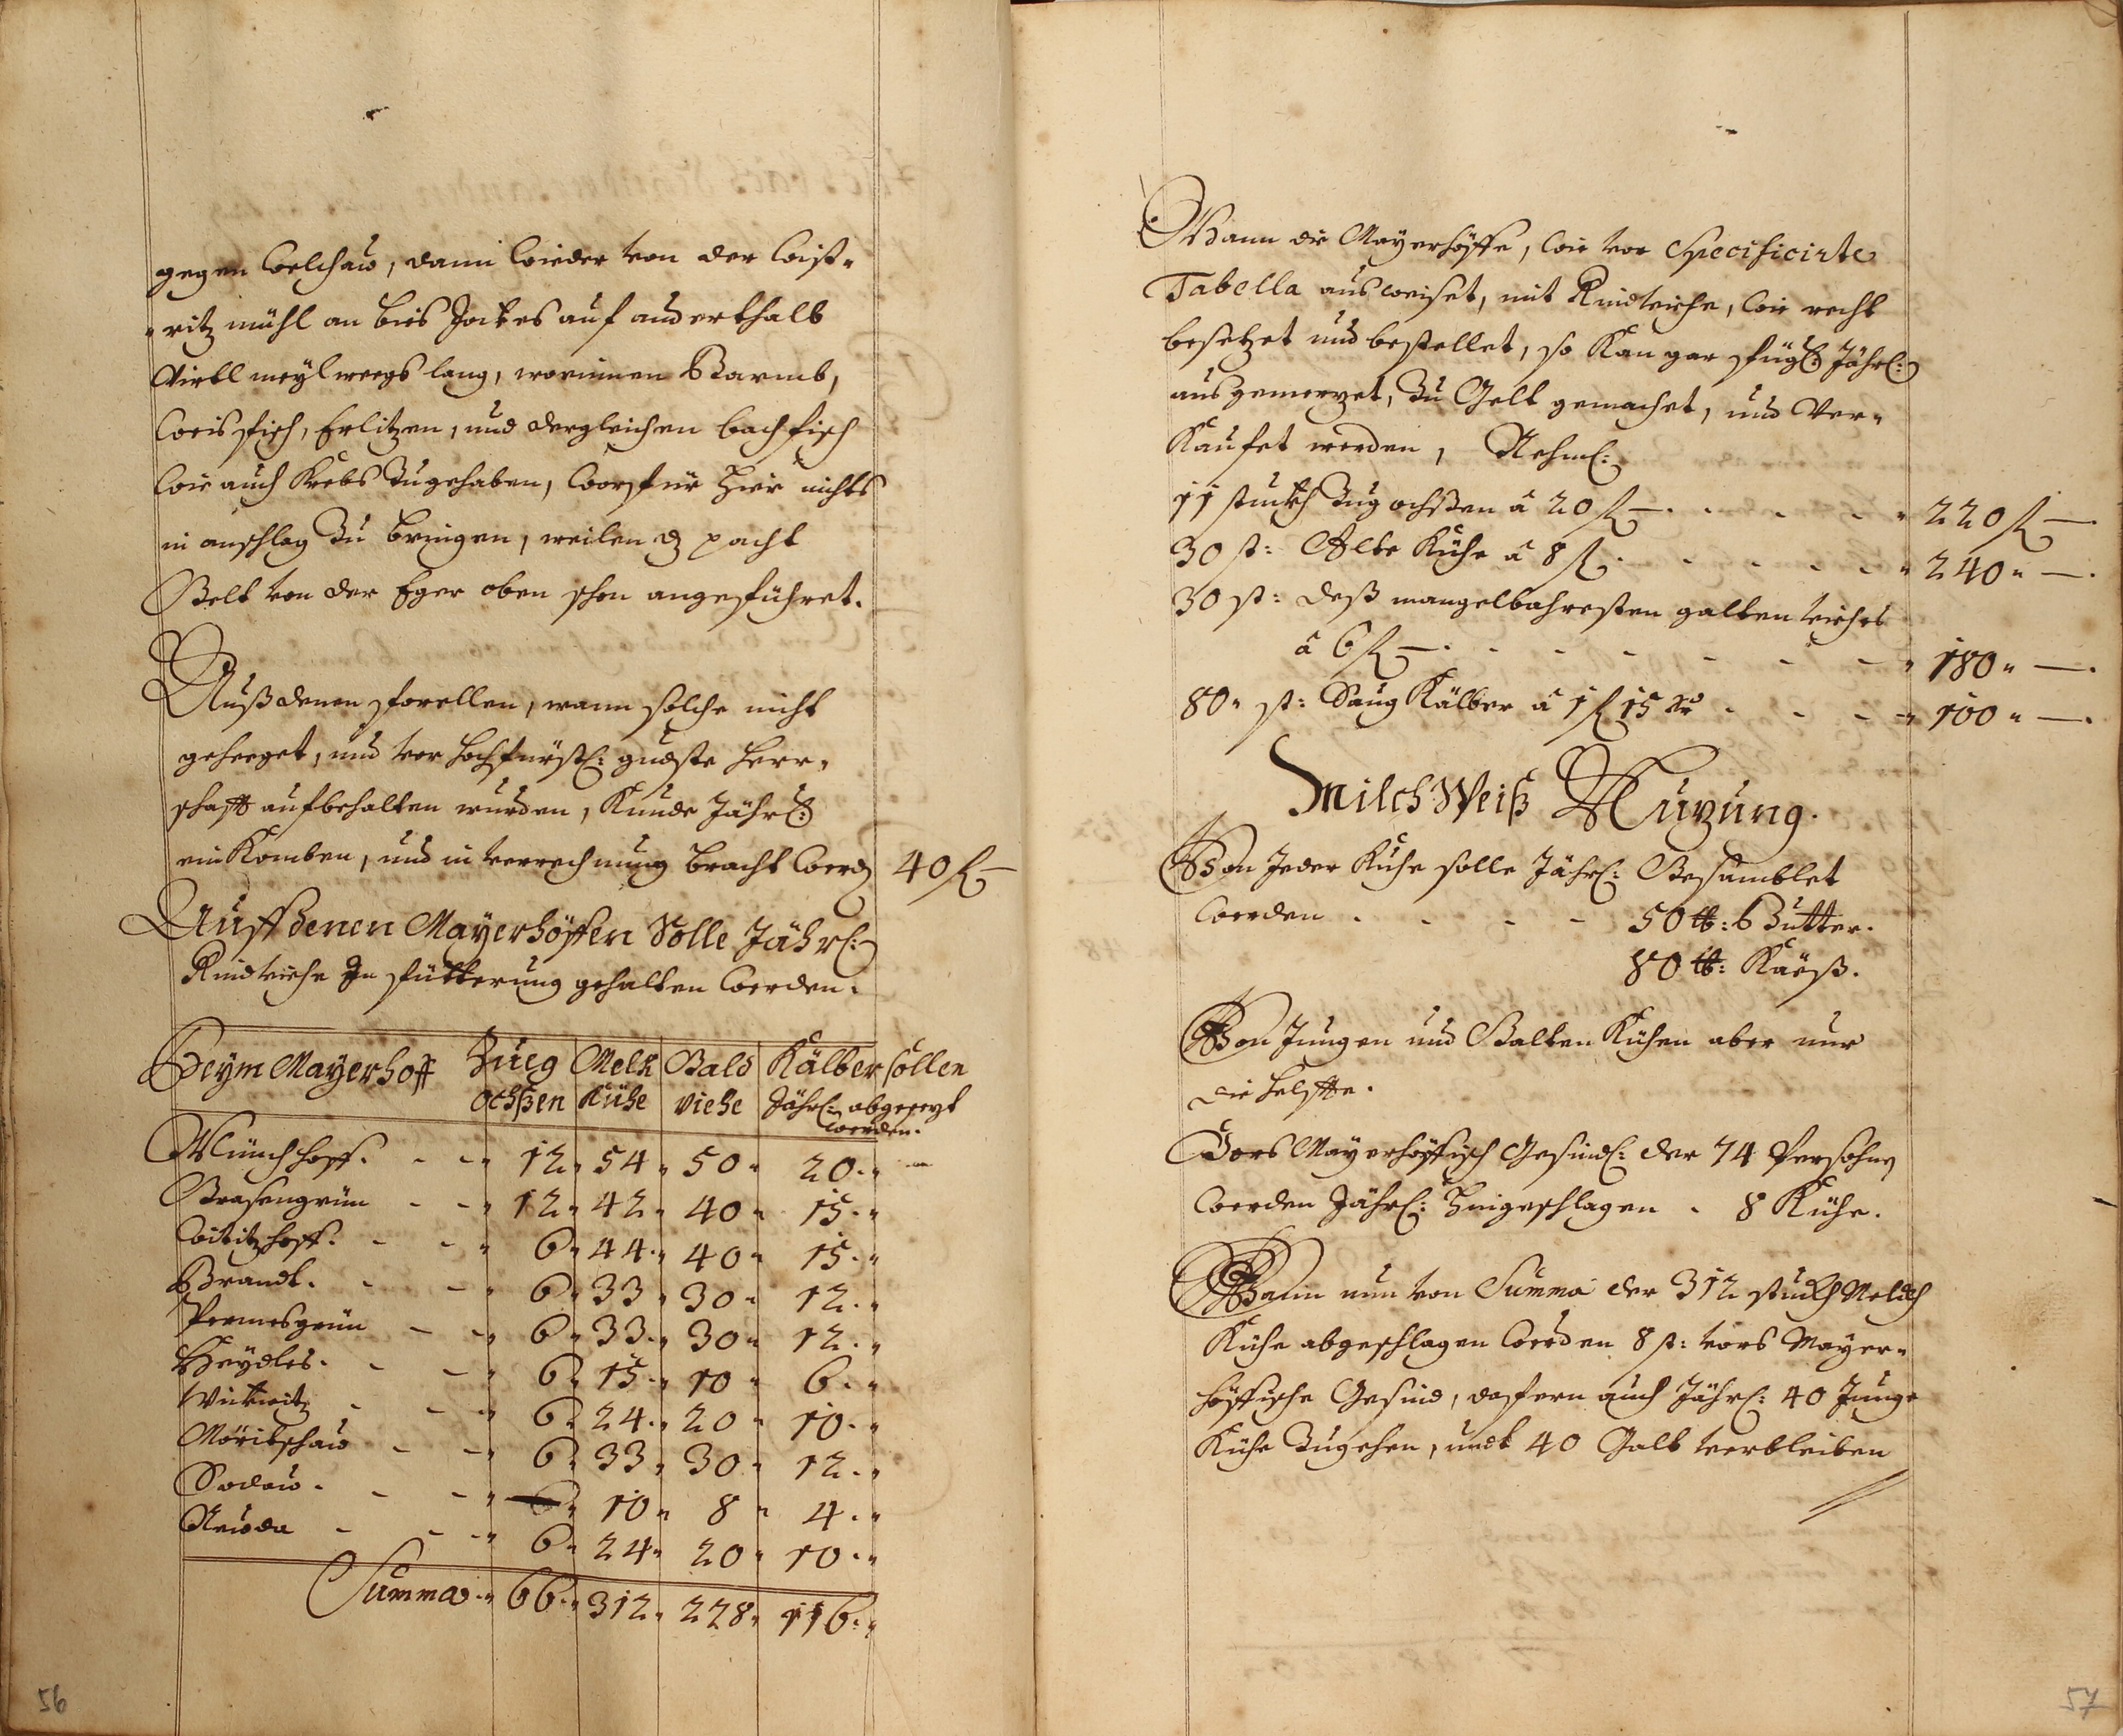 gegen Welchaw, dann wieder von der Wist„
„ritz mühl an bies Jockes auf anderthalb
Virtl meyl weegs lang, worinnen Barmb,
Weisfisch, Erlitzen, und dergleichen bachfisch
wie auch Krebs zugehaben, Worfür hier nichts
in anschlag zu bringen, weilen dz pacht
Gelt von der Eger oben schon angeführet.
Auß denen forellen, wann solche nicht
geheeget, und vor hochfürstl: gndste herr„
schafft aufbehalten wurden, Kunde Jährl:
ein Komben, und in verrechnung bracht werd 40 fl —
Auff denen Mayerhöffen Solle Jährl:
Rindviehe In fütterung gehalten werden.
Beym Mayerhoff Zueg Melk Gald Kälber sollen
ochßen Kühe viehe Jährl: abgesezt
werden.
Münchhoff. - - „ 12 „ 54 „ 50 „ 20 . „
Grasengrün - - „ 12 „ 42 „ 40 „ 15 . „
Wititzhoff. - - „ 6 „ 44 . „ 40 „ 15 . „
Brandt. - - „ 6 „ 33 „ 30 „ 12 . „
Permesgrün - - „ 6 „ 33 . „ 30 „ 12 . „
Heydles. - - „ 6 „ 15 . „ 10 „ 6 . „
Wickwitz - - „ 6 „ 24 . „ 20 „ 10 . „
Möritschaw - - „ 6 „ 33 „ 30 „ 12 . „
Sodaw. - - „ — „ 10 „ 8 „ 4 . „
Neuda - - „ 6 „ 24 „ 20 „ 10 . „
Summa . „ 66 . „ 312 „ 228 „ 116 . „
56
Wann die Mayerhöffe, wie vor Specificirte
Tabella ausweiset, mit Rindviehe, wie recht
besetzet und bestellet, so Kan gar fügl: Jährl:
ausgemerzet, zu Gelt gemachet, und Ver„
Kaufet werden, Nehml:
11 stuckh Zug ochßen â 20 fl —. - - - „ 220 fl —.
30 st: Alte Kühe â 8 fl. - - - - „ 240 „ —.
30 st: deß mangelbahresten galten viehes
â 6 fl —. - - - - - - „ 180 „ —.
80 „ st: Saug Kälber â 1 fl 15 xr - - - „ 100 „ —.
Milch Weiß Nuzung.
Von Jeder Kuhe solle Jährl: Gesamblet
werden . - - - 50 ℔: Butter.
80 ℔: Kaeß.
Von Jungen und Galten Kühen aber nur
die helffte.
Vors Mayerhöffisch Gesindl: der 74 Persohn
werden Jährl: hingeschlagen . 8 Kühe.
Wann nun von Summa der 312 stuckh Melckh
Kühe abgeschlagen werden 8 st: vors Mayer„
höffische Gesind, dafern auch Jährl: 40 Junge
Kühe zugehen, undt 40 Galt verbleiben
57